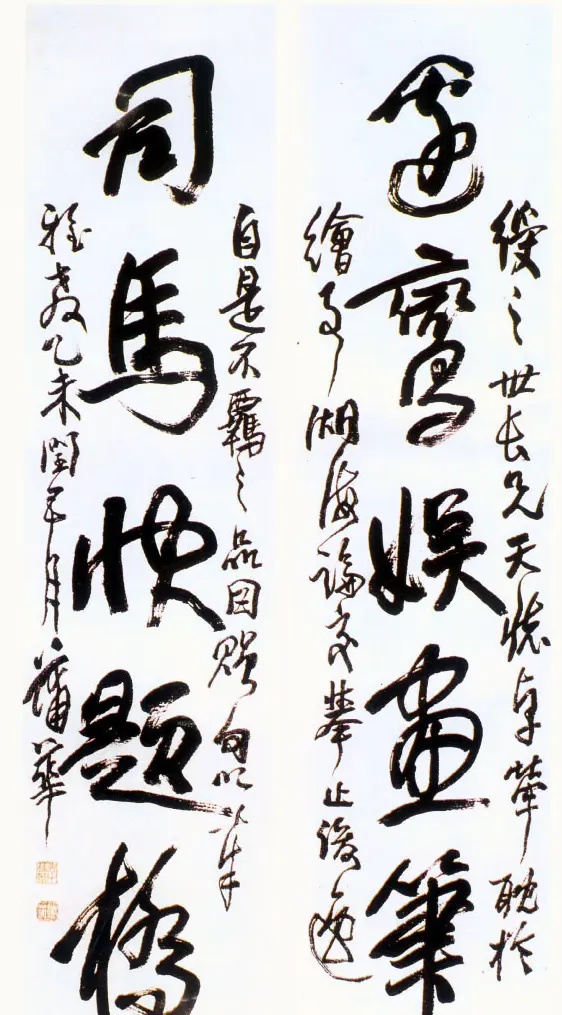 綬之世長兄天懷卓犖耽於
邊鸞娛畫筆
繪事湖海論交舉止俊逸
自是不羈之品因贈句以奉
司馬快題橋
雅教乙未閏五月蒲華